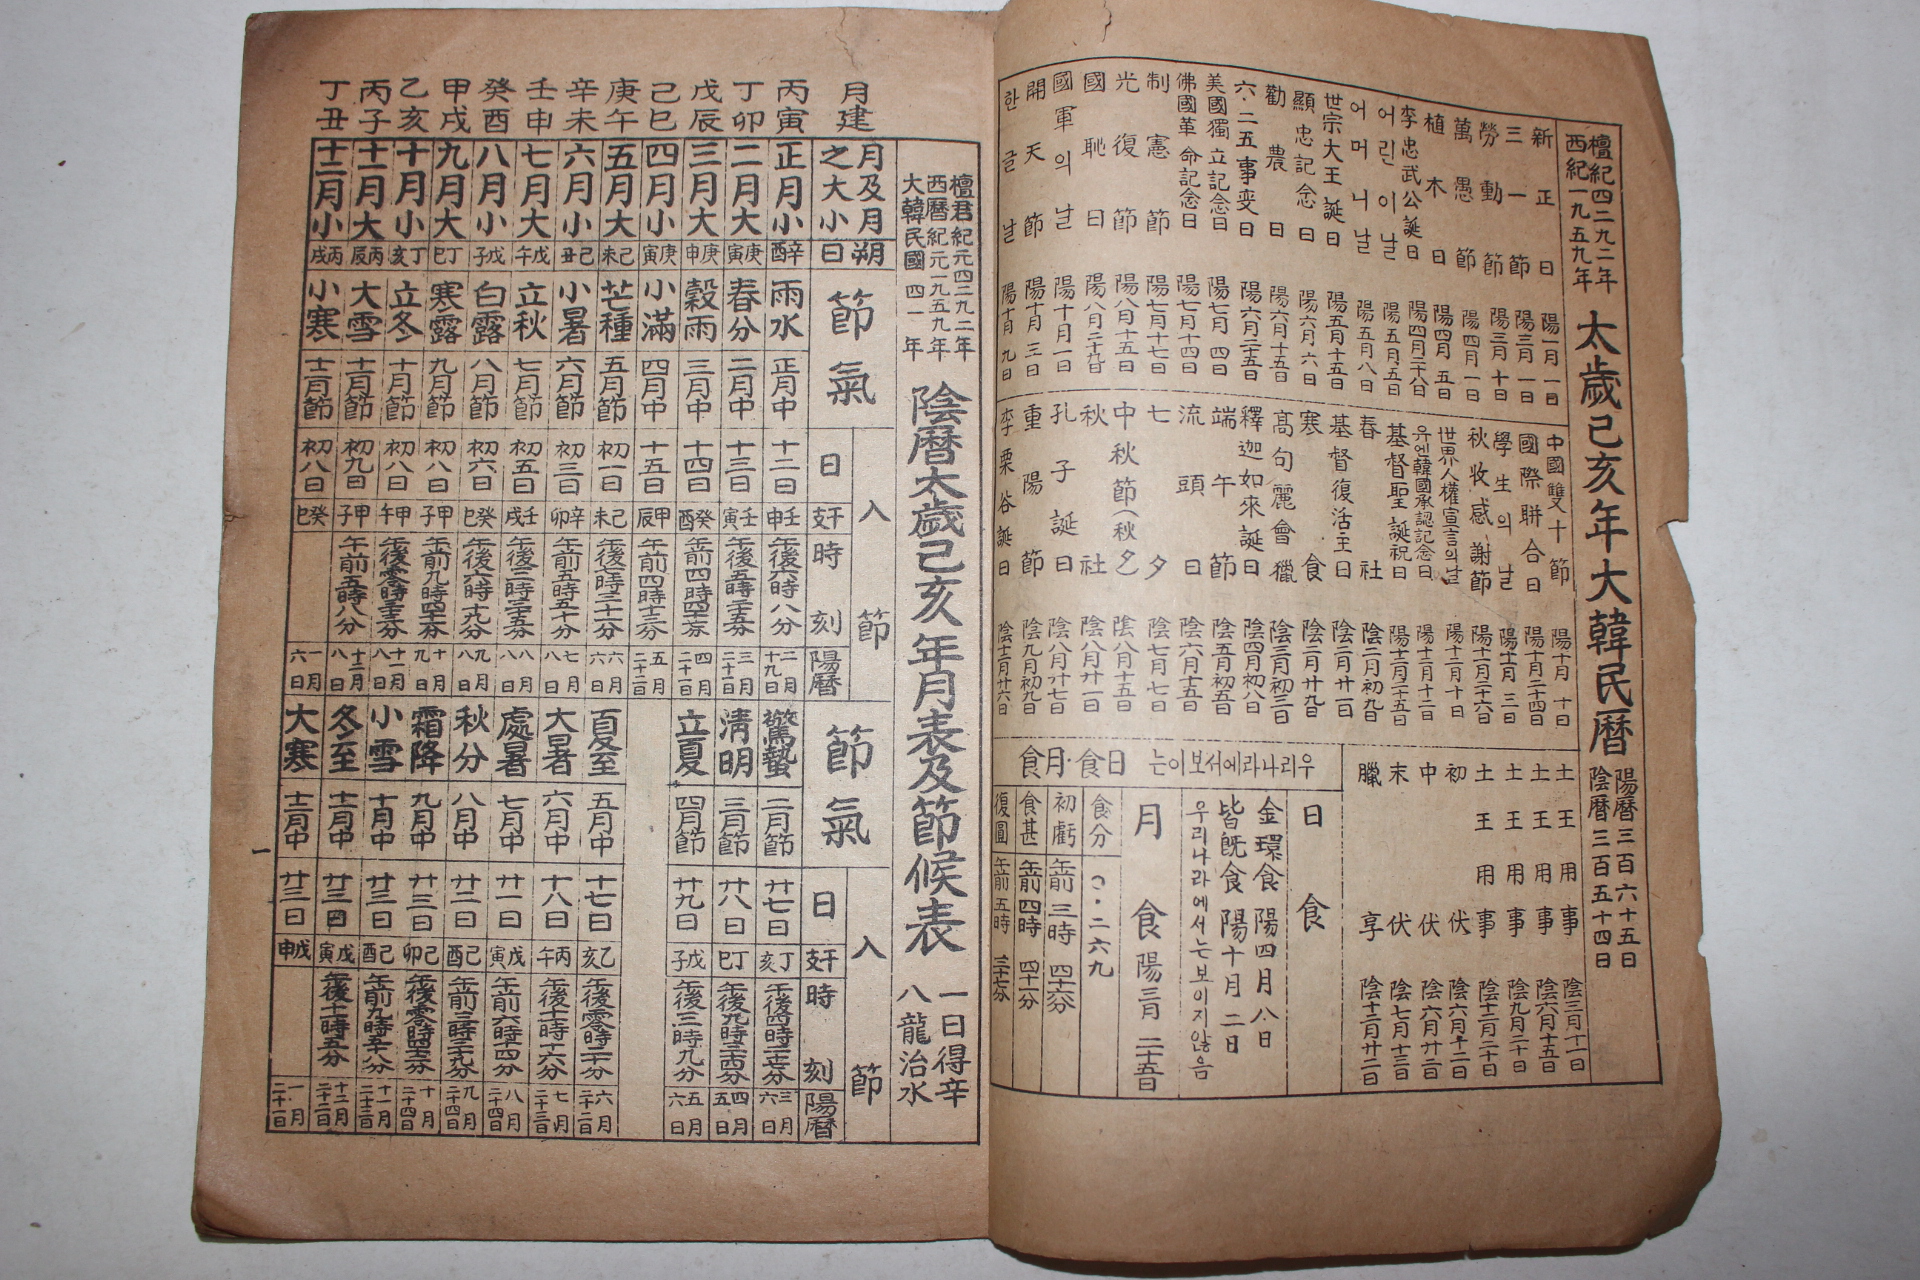 檀紀四二九二年
西紀一九五九年
太歲己亥年大韓民曆
陽曆三百六十五日
陰曆三百五十四日
新正日 陽一月一日
三一節 陽三月一日
勞動節 陽三月十日
萬愚節 陽四月一日
植木日 陽四月五日
李忠武公誕日 陽四月二十八日
어린이날 陽五月五日
어머니날 陽五月八日
世宗大王誕日 陽五月十五日
顯忠記念日 陽六月六日
勸農日 陽六月十五日
六·二五事変日 陽六月二十五日
美國獨立記念日 陽七月四日
佛國革命記念日 陽七月十四日
制憲節 陽七月十七日
光復節 陽八月十五日
國恥日 陽八月二十九日
國軍의날 陽十月一日
開天節 陽十月三日
한글날 陽十月九日
中國雙十節 陽十月十日
國際聯合日 陽十月二十四日
學生의날 陽十一月三日
秋收感謝節 陽十一月二十六日
世界人權宣言의날 陽十二月十日
유엔韓國承認記念日 陽十二月十二日
基督聖誕祝日 陽十二月二十五日
春社 陰二月初九日
基督復活主日 陰二月廿一日
寒食 陰二月廿九日
高句麗會獵 陰三月初三日
釋迦如來誕日 陰四月初八日
端午節 陰五月初五日
流頭日 陰六月十五日
七夕 陰七月七日
中秋節(秋夕) 陰八月十五日
秋社 陰八月廿一日
孔子誕日 陰八月廿七日
重陽節 陰九月初九日
李栗谷誕日 陰十二月廿六日
土王用事 陰三月十一日
土王用事 陰六月十五日
土王用事 陰九月二十日
土王用事 陰十二月二十日
初伏 陰六月十二日
中伏 陰六月廿二日
末伏 陰七月十三日
臘享 陰十二月廿二日
우리나라에서보이는 日食·月食
日食
金環食 陽四月八日
皆旣食 陽十月二日
우리나라에서는보이지않음
月食 陽三月二十五日
食分 ○·二六九
初虧 午前三時四十六分
食甚 午前四時四十一分
復圓 午前五時三十七分
檀君紀元四二九二年
西曆紀元一九五九年
大韓民國四一年
陰曆太歲己亥年月表及節候表
一日得辛
八龍治水
月建 月及月之大小 朔日 節氣 入節 日 干支 時刻 陽曆 節氣 入節 日 干支 時刻 陽曆
丙寅 正月小 辛酉 雨水 正月中 十二日 壬申 午後六時八分 二月十九日 驚蟄 二月節 廿七日 丁亥 午後四時二十七分 三月六日
丁卯 二月大 庚寅 春分 二月中 十三日 壬寅 午後五時三十五分 三月二十一日 淸明 三月節 廿八日 丁巳 午後九時三十四分 四月五日
戊辰 三月大 庚申 穀雨 三月中 十四日 癸酉 午前四時四十六分 四月二十一日 立夏 四月節 廿九日 戊子 午後三時九分 五月六日
己巳 四月小 庚寅 小滿 四月中 十五日 甲辰 午前四時十三分 五月二十二日
庚午 五月大 己未 芒種 五月節 初一日 己未 午後七時三十一分 六月六日 夏至 五月中 十七日 乙亥 午後零時二十分 六月二十二日
辛未 六月小 己丑 小暑 六月節 初三日 辛卯 午前五時五十分 七月八日 大暑 六月中 十八日 丙午 午後十一時十六分 七月二十三日
壬申 七月大 戊午 立秋 七月節 初五日 壬戌 午後三時三十五分 八月八日 處暑 七月中 廿一日 戊寅 午前六時十四分 八月二十四日
癸酉 八月小 戊子 白露 八月節 初六日 癸巳 午後六時十九分 九月八日 秋分 八月中 廿二日 己酉 午前三時三十九分 九月二十四日
甲戌 九月大 丁巳 寒露 九月節 初八日 甲子 午前九時四十一分 十月九日 霜降 九月中 廿三日 己卯 午後零時四十三分 十月二十四日
乙亥 十月小 丁亥 立冬 十月節 初八日 甲午 午後零時三十三分 十一月八日 小雪 十月中 廿三日 己酉 午前九時五十八分 十一月二十三日
丙子 十一月大 丙辰 大雪 十一月節 初九日 甲子 午前五時八分 十二月八日 冬至 十一月中 廿三日 戊寅 午後十一時五分 十二月二十二日
丁丑 十二月小 丙戌 小寒 十二月節 初八日 癸巳 一月六日 大寒 十二月中 廿三日 戊申 一月二十一日
一